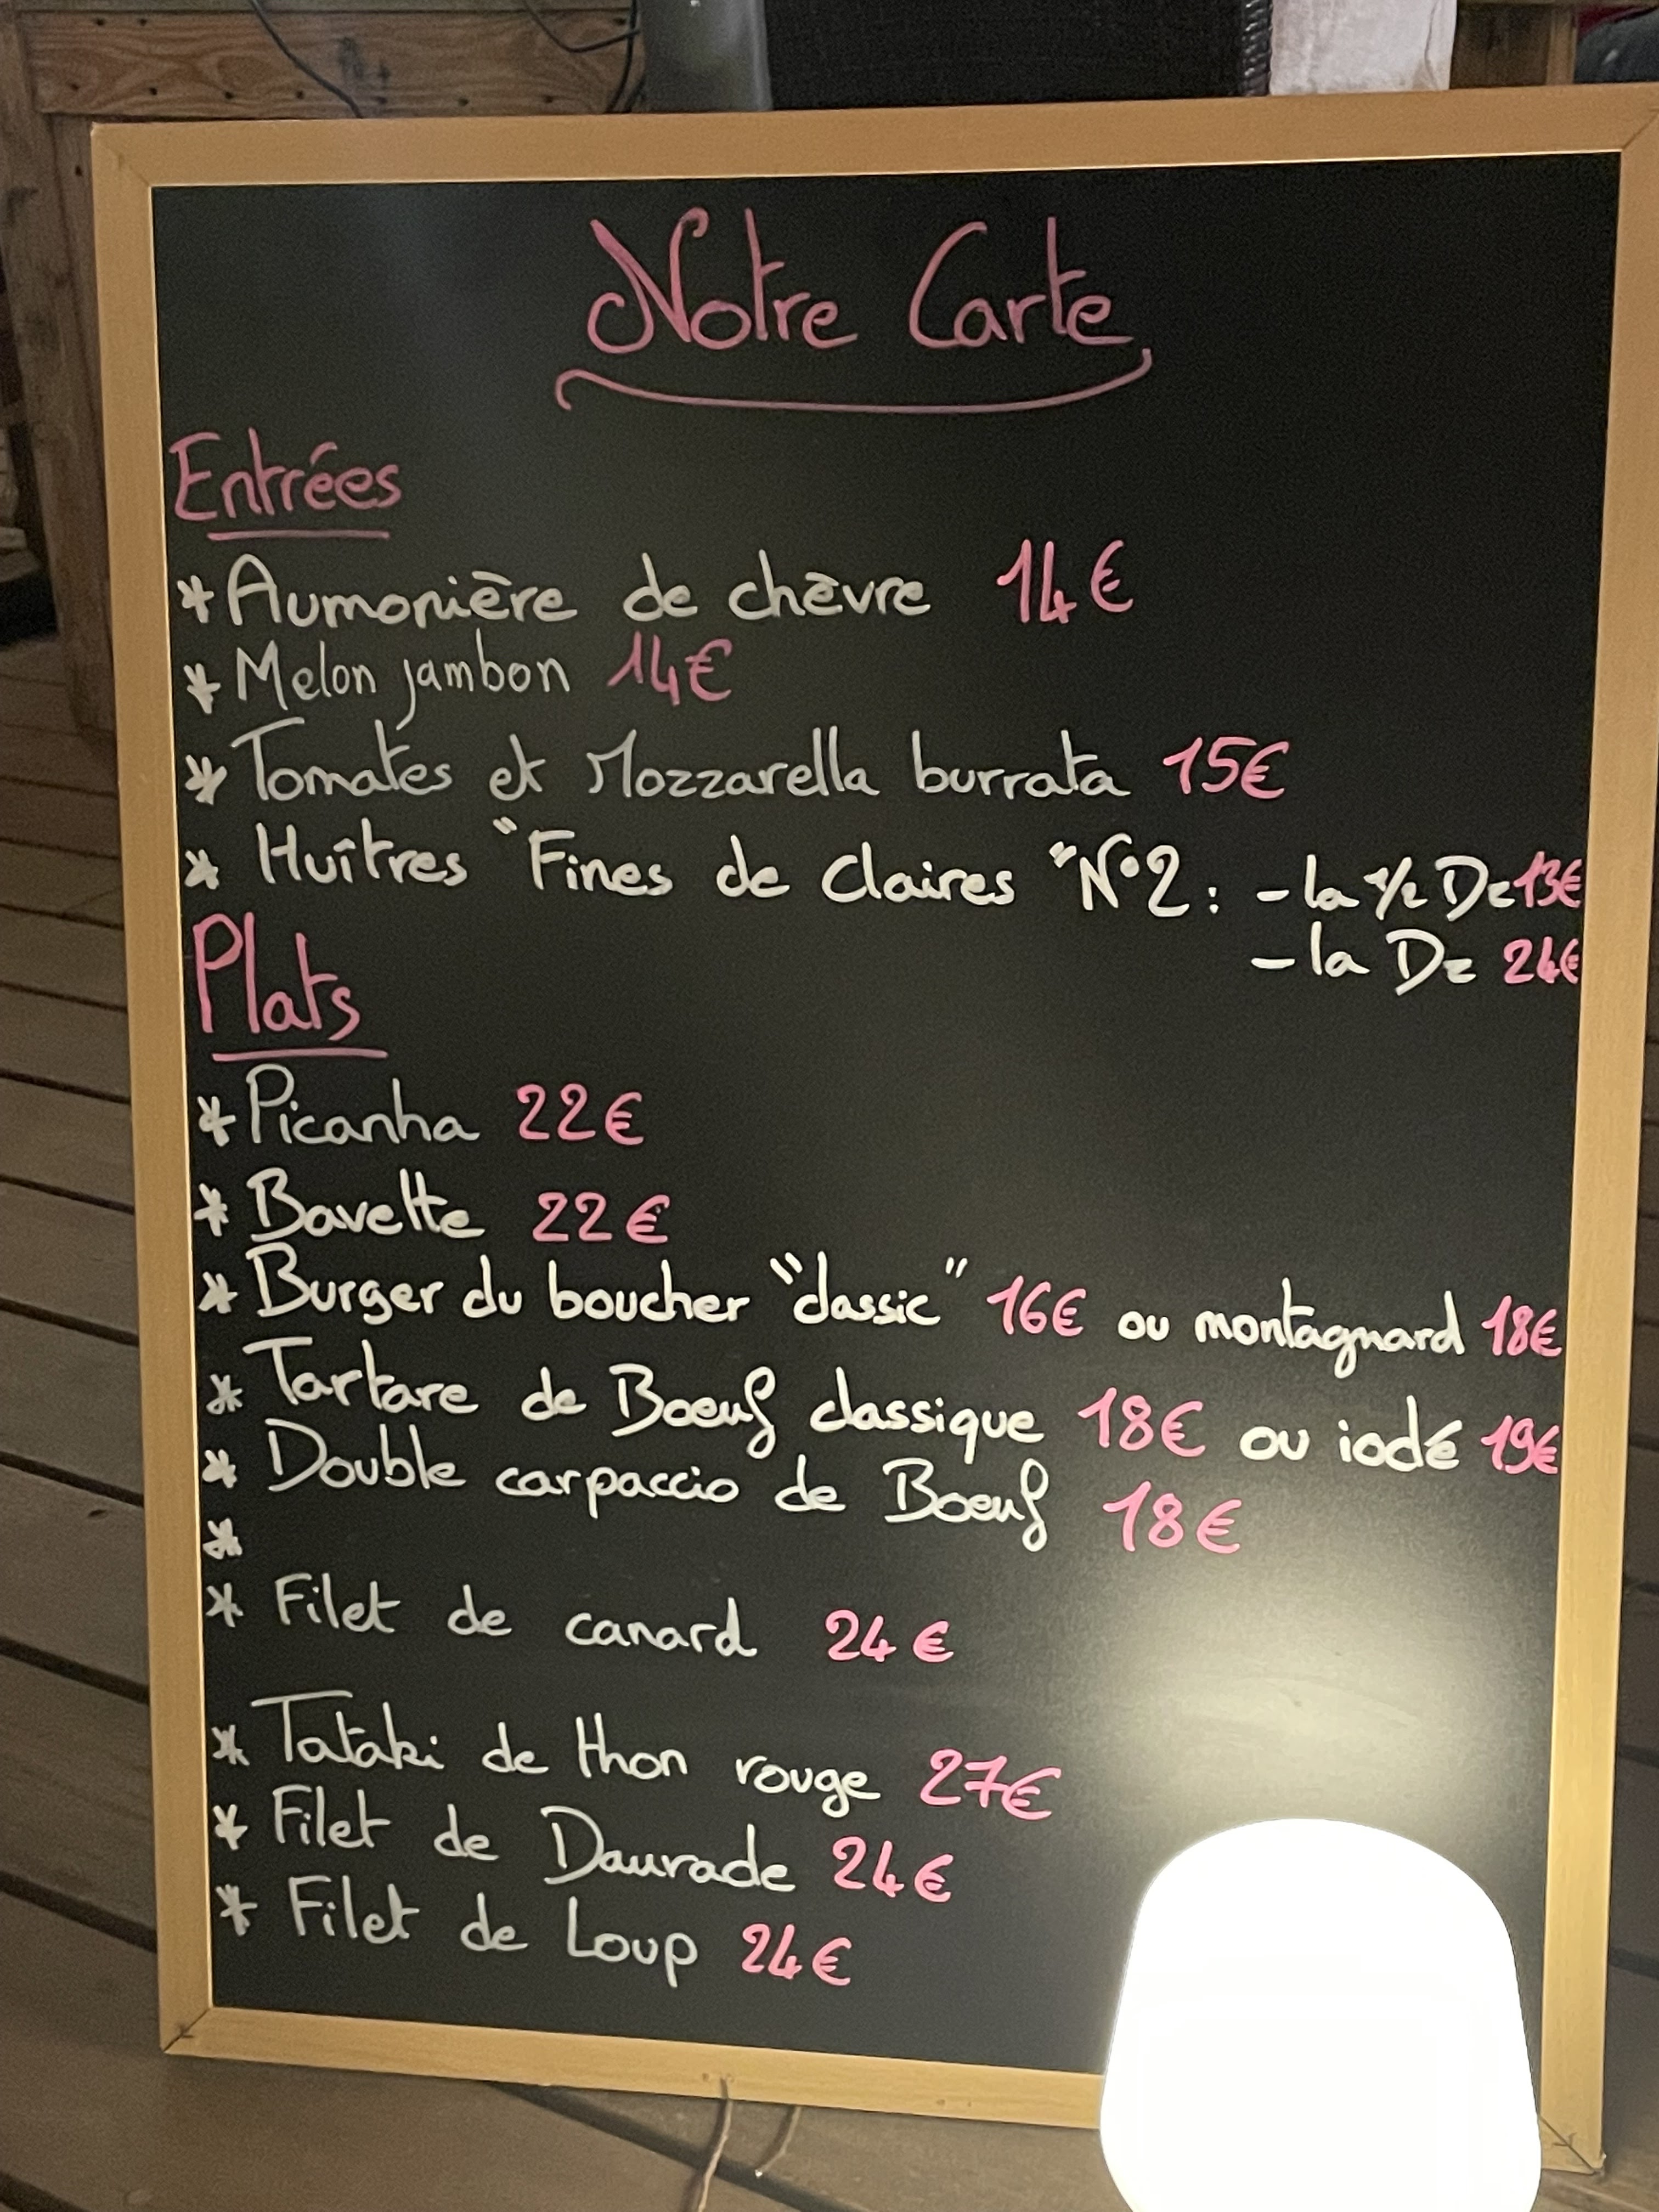 Notre Carte
Entrées
* Aumonière de chèvre 14€
* Melon jambon 14€
* Tomates et Mozzarella burrata 15€
* Huîtres "Fines de Claires "N°2 : - la 1/2 Dz 13€
- la Dz 24€
Plats
* Picanha 22€
* Bavette 22€
* Burger du boucher "classic" 16€ ou montagnard 18€
* Tartare de Boeuf classique 18€ ou iodé 19€
* Double carpaccio de Boeuf 18€
*
* Filet de canard 24€
* Tataki de thon rouge 27€
* Filet de Daurade 24€
* Filet de Loup 24€